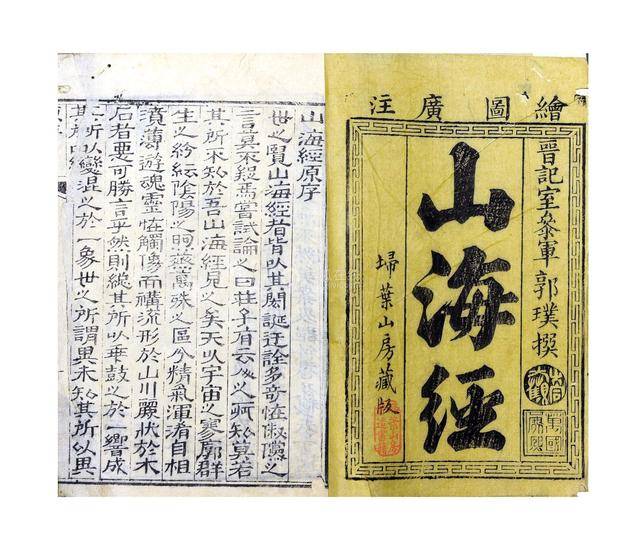 繪圖廣注
晉記室參軍郭璞撰
山海經
埽葉山房藏版
山海經原序
世之覽山海經者皆以其閎誕迂誇多奇怪俶儻之
言莫不疑焉嘗試論之曰莊子有云人之所知莫若
其所不知於吾山海經見之矣夫以宇宙之寥廓群
生之紛紜陰陽之煦蒸萬殊之區分精氣渾淆自相
濆薄遊魂靈怪觸像而構流形於山川麗狀於木
石者惡可勝言乎然則總其所以乖鼓之於一響成
其所以變混之於一象世之所謂異未知其所以異